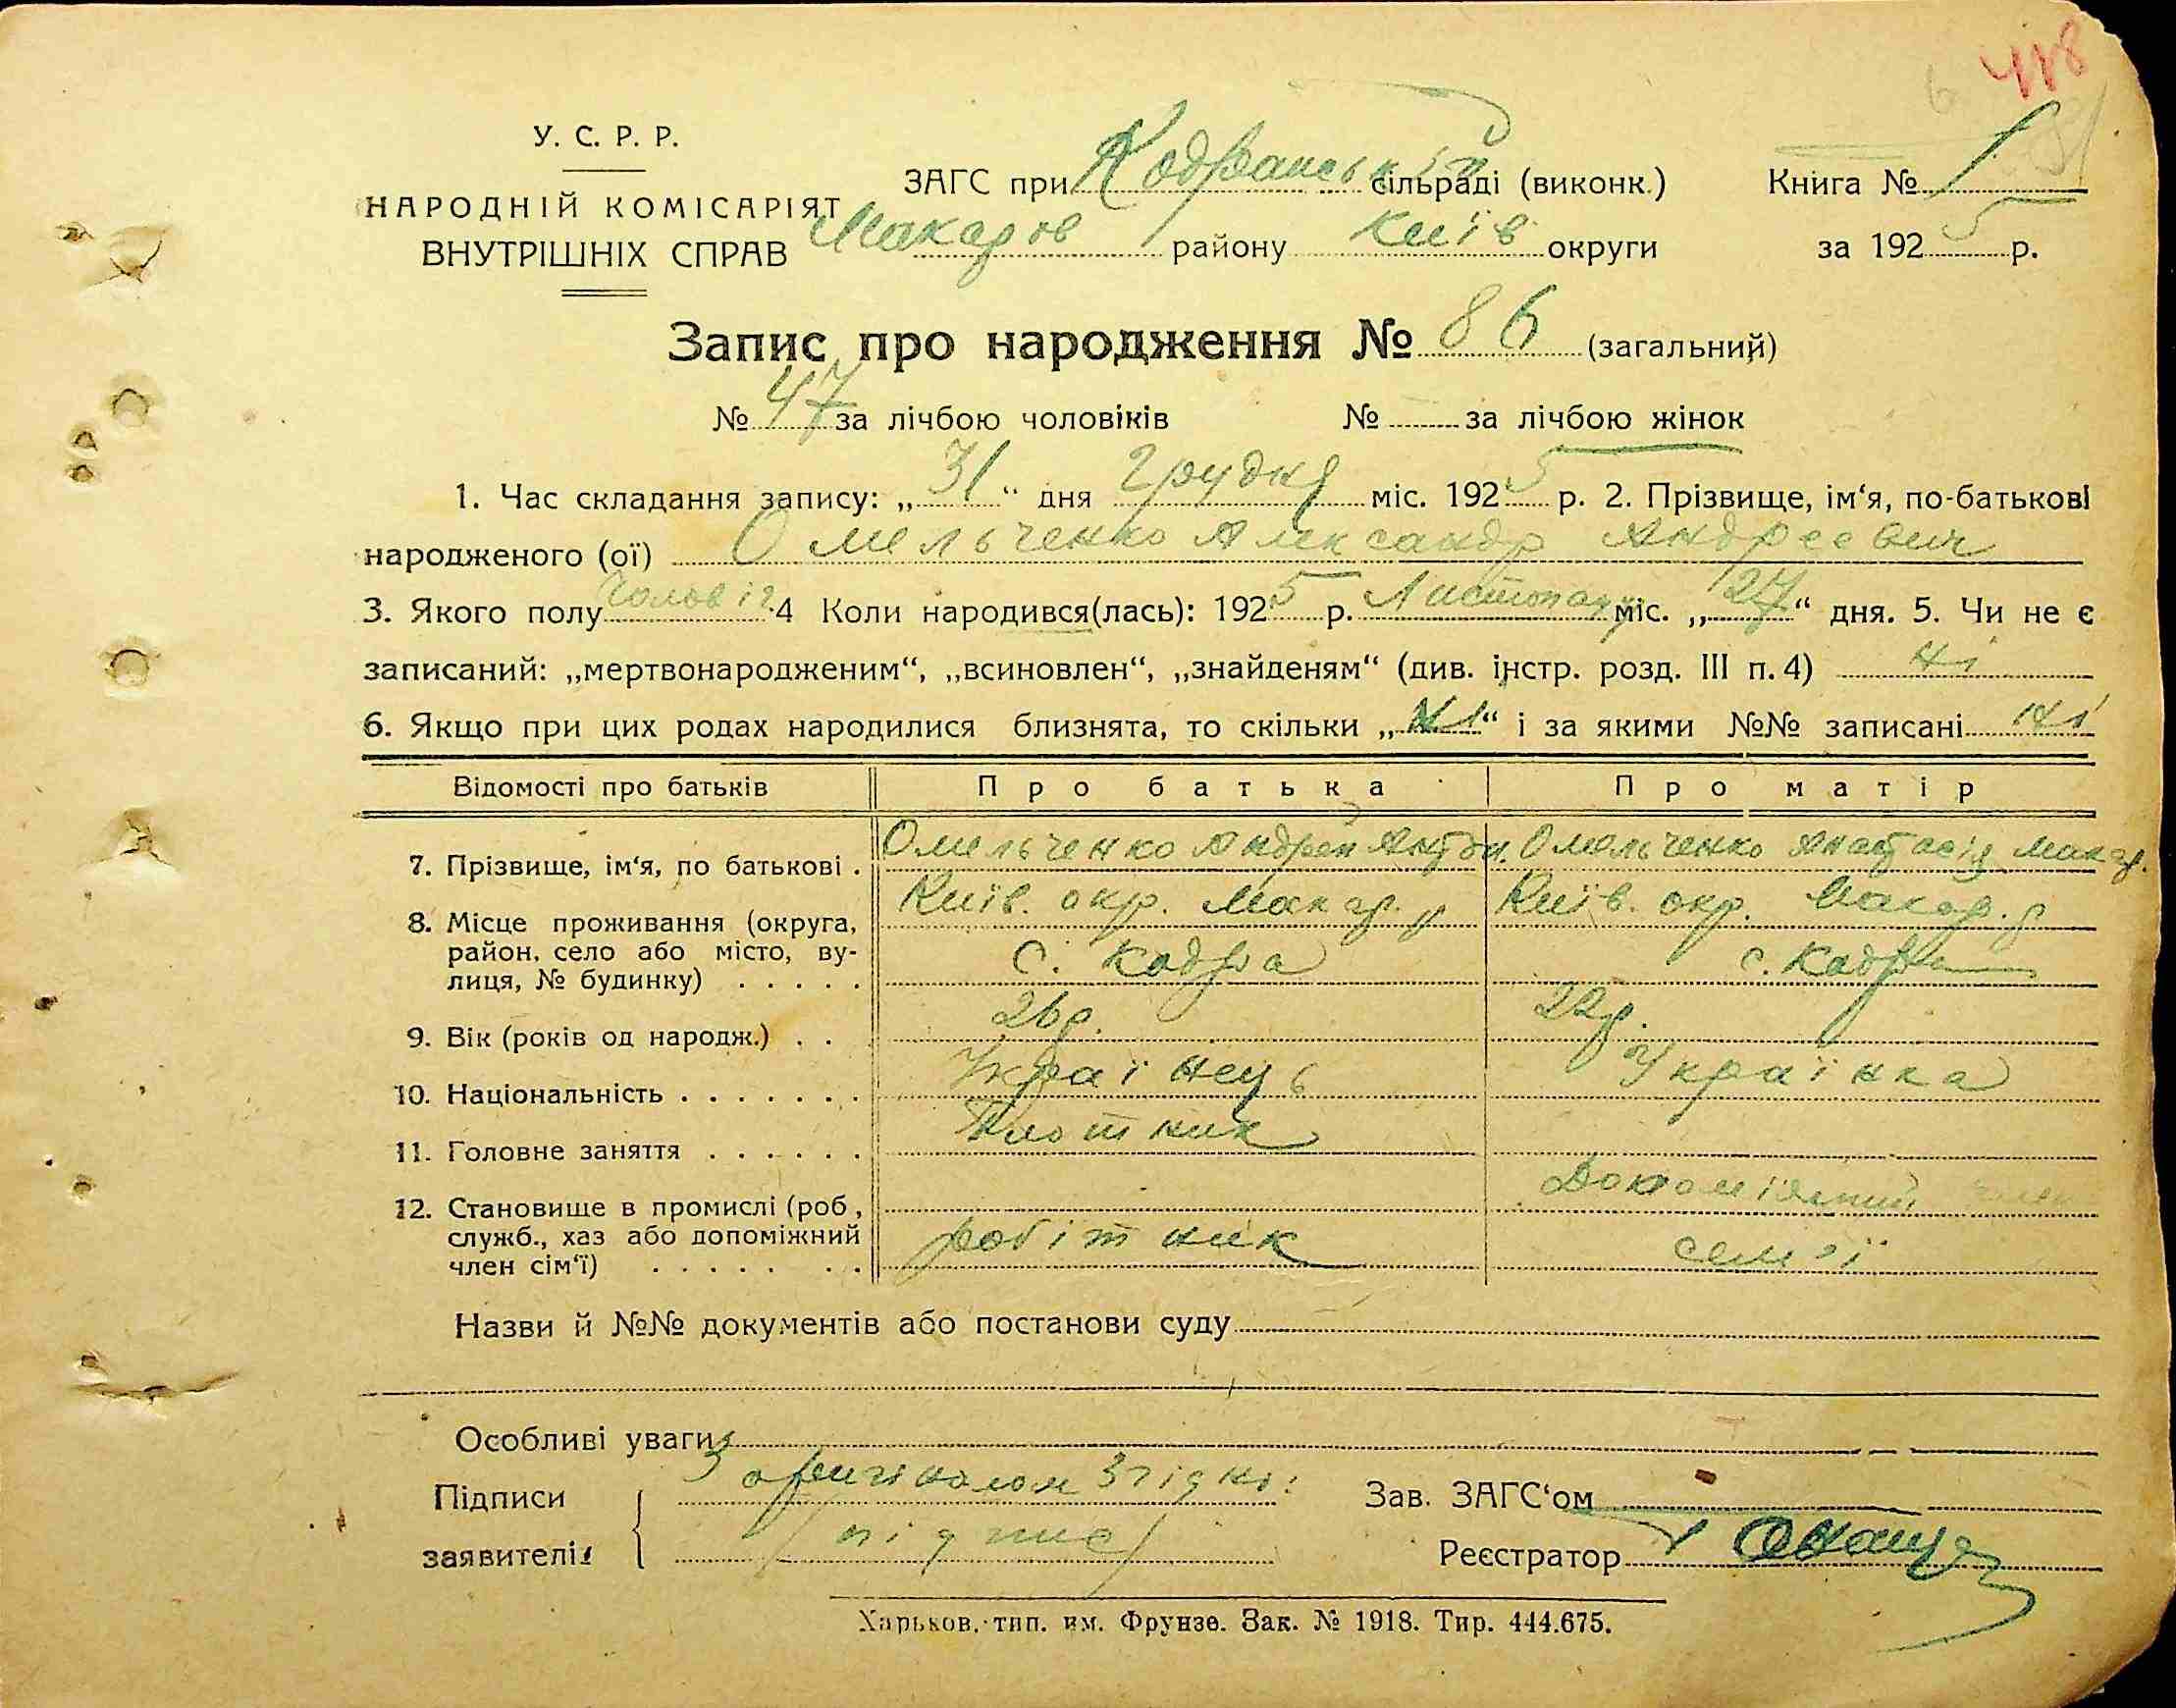 418
У. С. Р. Р.
НАРОДНІЙ КОМІСАРІЯТ
ВНУТРІШНІХ СПРАВ
ЗАГС при Кодранській сільраді (виконк.)
Макаров району Київ округи
Книга № 1
за 1925 р.
Запис про народження № 86 (загальний)
№ 47 за лічбою чоловіків № за лічбою жінок
1. Час складання запису: „31“ дня Грудня міс. 1925 р. 2. Прізвище, ім‘я, по-батькові
народженого (ої) Омельченко Александр Андреевич
3. Якого полу Чоловіч. 4 Коли народився(лась): 1925 р. Листопаду міс. „27“ дня. 5. Чи не є
записаний: „мертвонародженим“, „всиновлен“, „знайденям“ (див. інстр. розд. III п. 4) ні
6. Якщо при цих родах народилися близнята, то скільки „ні“ і за якими №№ записані ні
Відомості про батьків Про батька Про матір
7. Прізвище, ім‘я, по батькові . Омельченко Андрей Антон. Омельченко Анастасія Макар.
8. Місце проживання (округа, район, село або місто, вулиця, № будинку) . . . . .
Київ. окр. Макар. р
с. Кодра
Київ. окр. Макар. р
с. Кодра
9. Вік (років од народж.) . . 26 р. 22 р.
10. Національність . . . . . . . Українець Українка
11. Головне заняття . . . . . . Плотник
12. Становище в промислі (роб, служб., хаз або допоміжний член сім‘ї) . . . . . . .
робітник
Допоміжний член
семʼї
Назви й №№ документів або постанови суду
Особливі уваги
Підписи
заявителів
З оригіналом згідно:
/підпис/
Зав. ЗАГС‘ом
Реєстратор
Харьков. тип. им. Фрунзе. Зак. № 1918. Тир. 444.675.